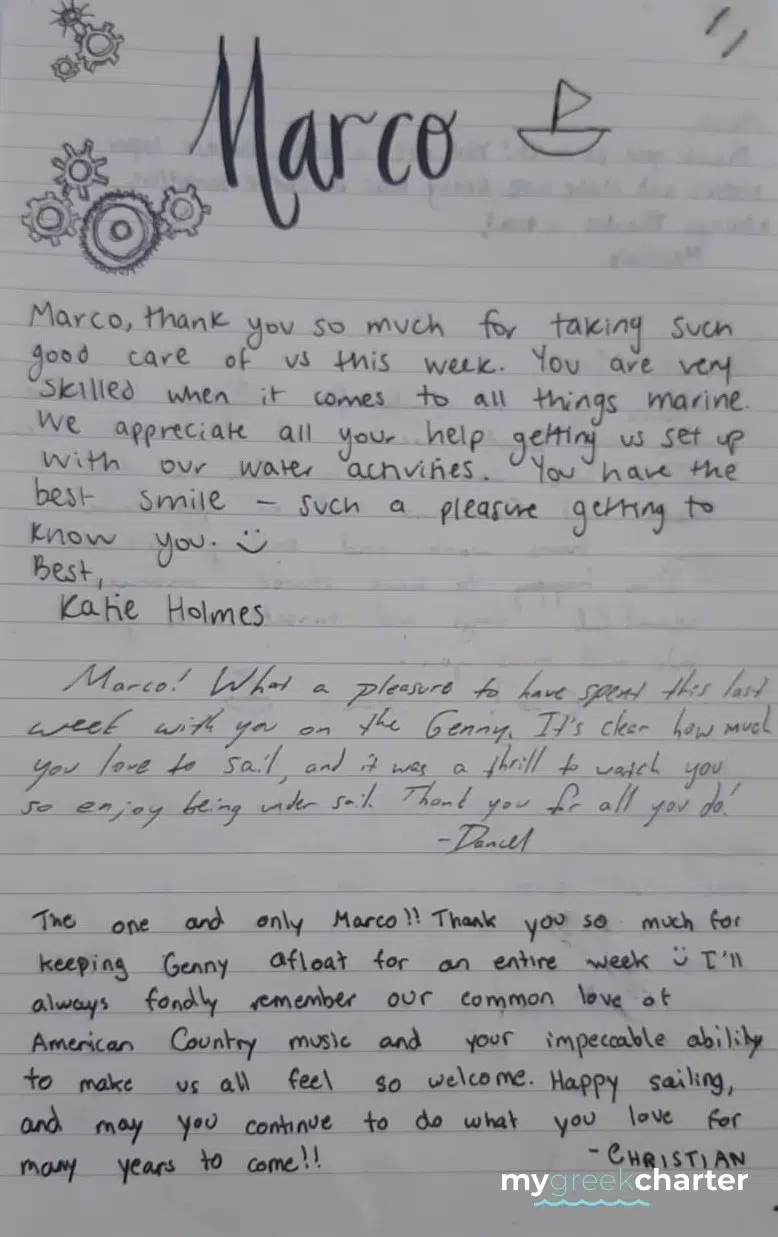 Marco
Marco, thank you so much for taking such
good care of us this week. You are very
skilled when it comes to all things marine.
We appreciate all your help getting us set up
with our water activities. You have the
best smile – such a pleasure getting to
know you. :)
Best,
Katie Holmes
Marco! What a pleasure to have spent this last
week with you on the Genny. It's clear how much
you love to sail, and it was a thrill to watch you
so enjoy being under sail. Thank you for all you do!
-Daniel
The one and only Marco!! Thank you so much for
keeping Genny afloat for an entire week :) I'll
always fondly remember our common love of
American Country music and your impeccable ability
to make us all feel so welcome. Happy sailing,
and may you continue to do what you love for
many years to come!!
-CHRISTIAN
mygreekcharter